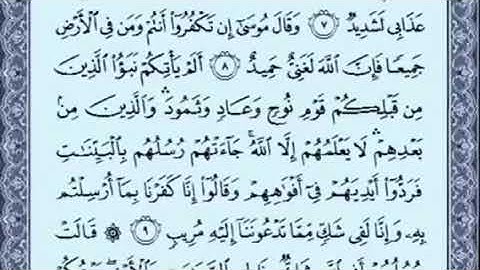 عَذَابِى لَشَدِيدٌ ٧ وَقَالَ مُوسَىٰٓ إِن تَكْفُرُوٓا۟ أَنتُمْ وَمَن فِى ٱلْأَرْضِ
جَمِيعًا فَإِنَّ ٱللَّهَ لَغَنِىٌّ حَمِيدٌ ٨ أَلَمْ يَأْتِكُمْ نَبَؤُا۟ ٱلَّذِينَ
مِن قَبْلِكُمْ قَوْمِ نُوحٍ وَعَادٍ وَثَمُودَ ۛ وَٱلَّذِينَ مِنۢ
بَعْدِهِمْ ۛ لَا يَعْلَمُهُمْ إِلَّا ٱللَّهُ ۚ جَآءَتْهُمْ رُسُلُهُم بِٱلْبَيِّنَٰتِ
فَرَدُّوٓا۟ أَيْدِيَهُمْ فِىٓ أَفْوَٰهِهِمْ وَقَالُوٓا۟ إِنَّا كَفَرْنَا بِمَآ أُرْسِلْتُم
بِهِۦ وَإِنَّا لَفِى شَكٍّ مِّمَّا تَدْعُونَنَآ إِلَيْهِ مُرِيبٍ ٩ ۞ قَالَتْ